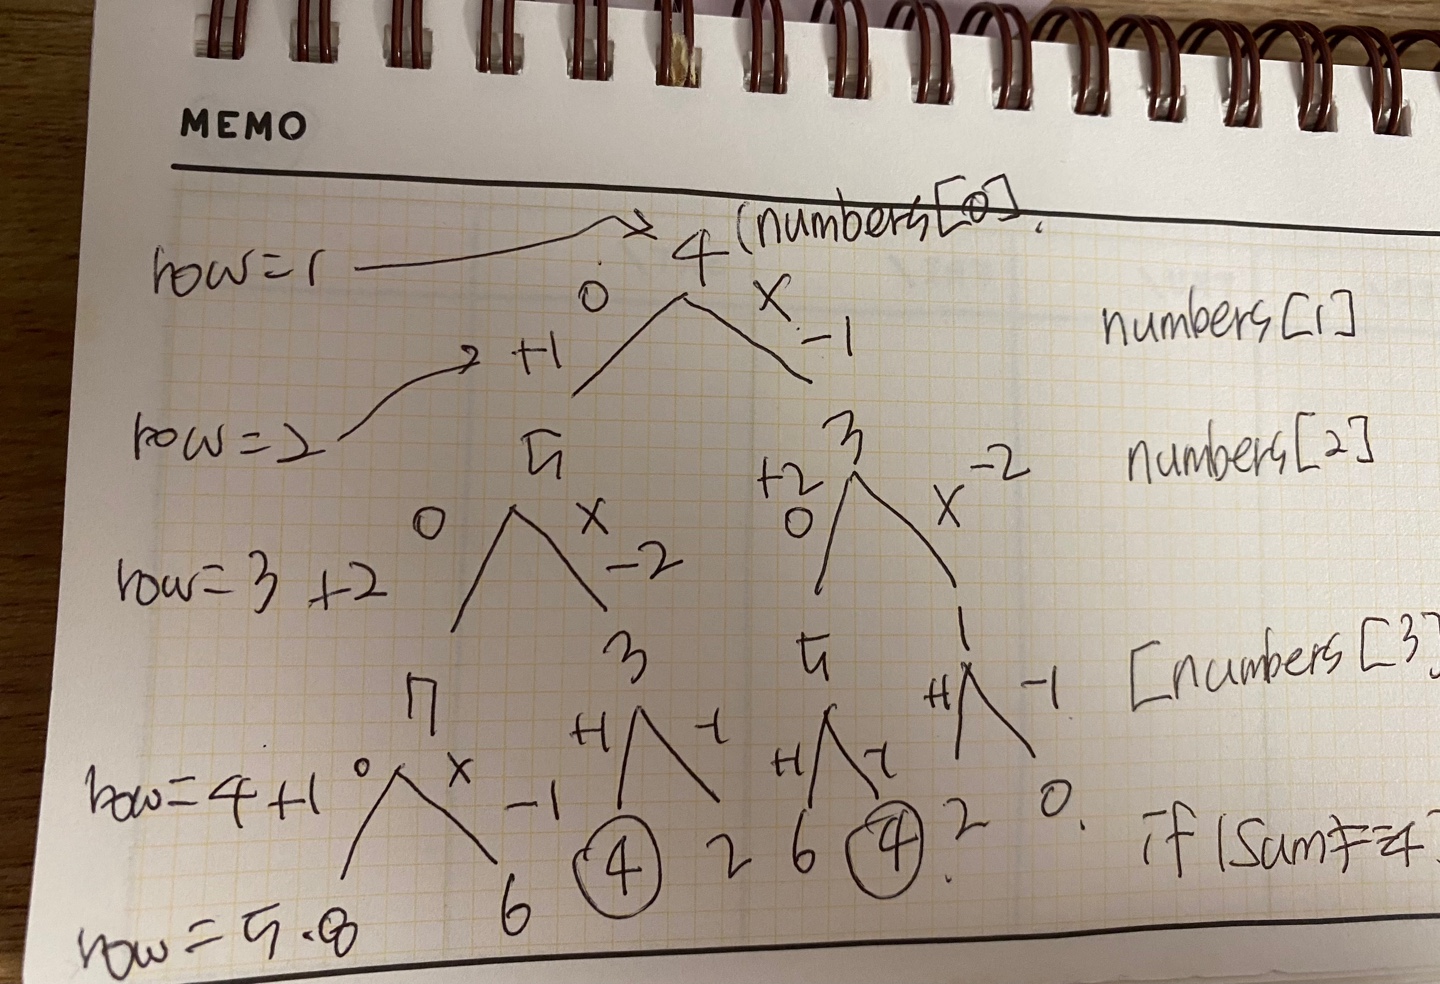 MEMO
row=1 4 (numbers[0].
0 X
+1 -1 numbers[1]
row=2 5 3 numbers[2]
+2 -2
0 X 0 X
row=3 +2 -2
7 3 5 1 [numbers[3]
+1 -1 +1 -1 +1 -1
row=4 +1 0 X -1
4 2 6 4 2 0. if (Sum==4)
row=5 8 6